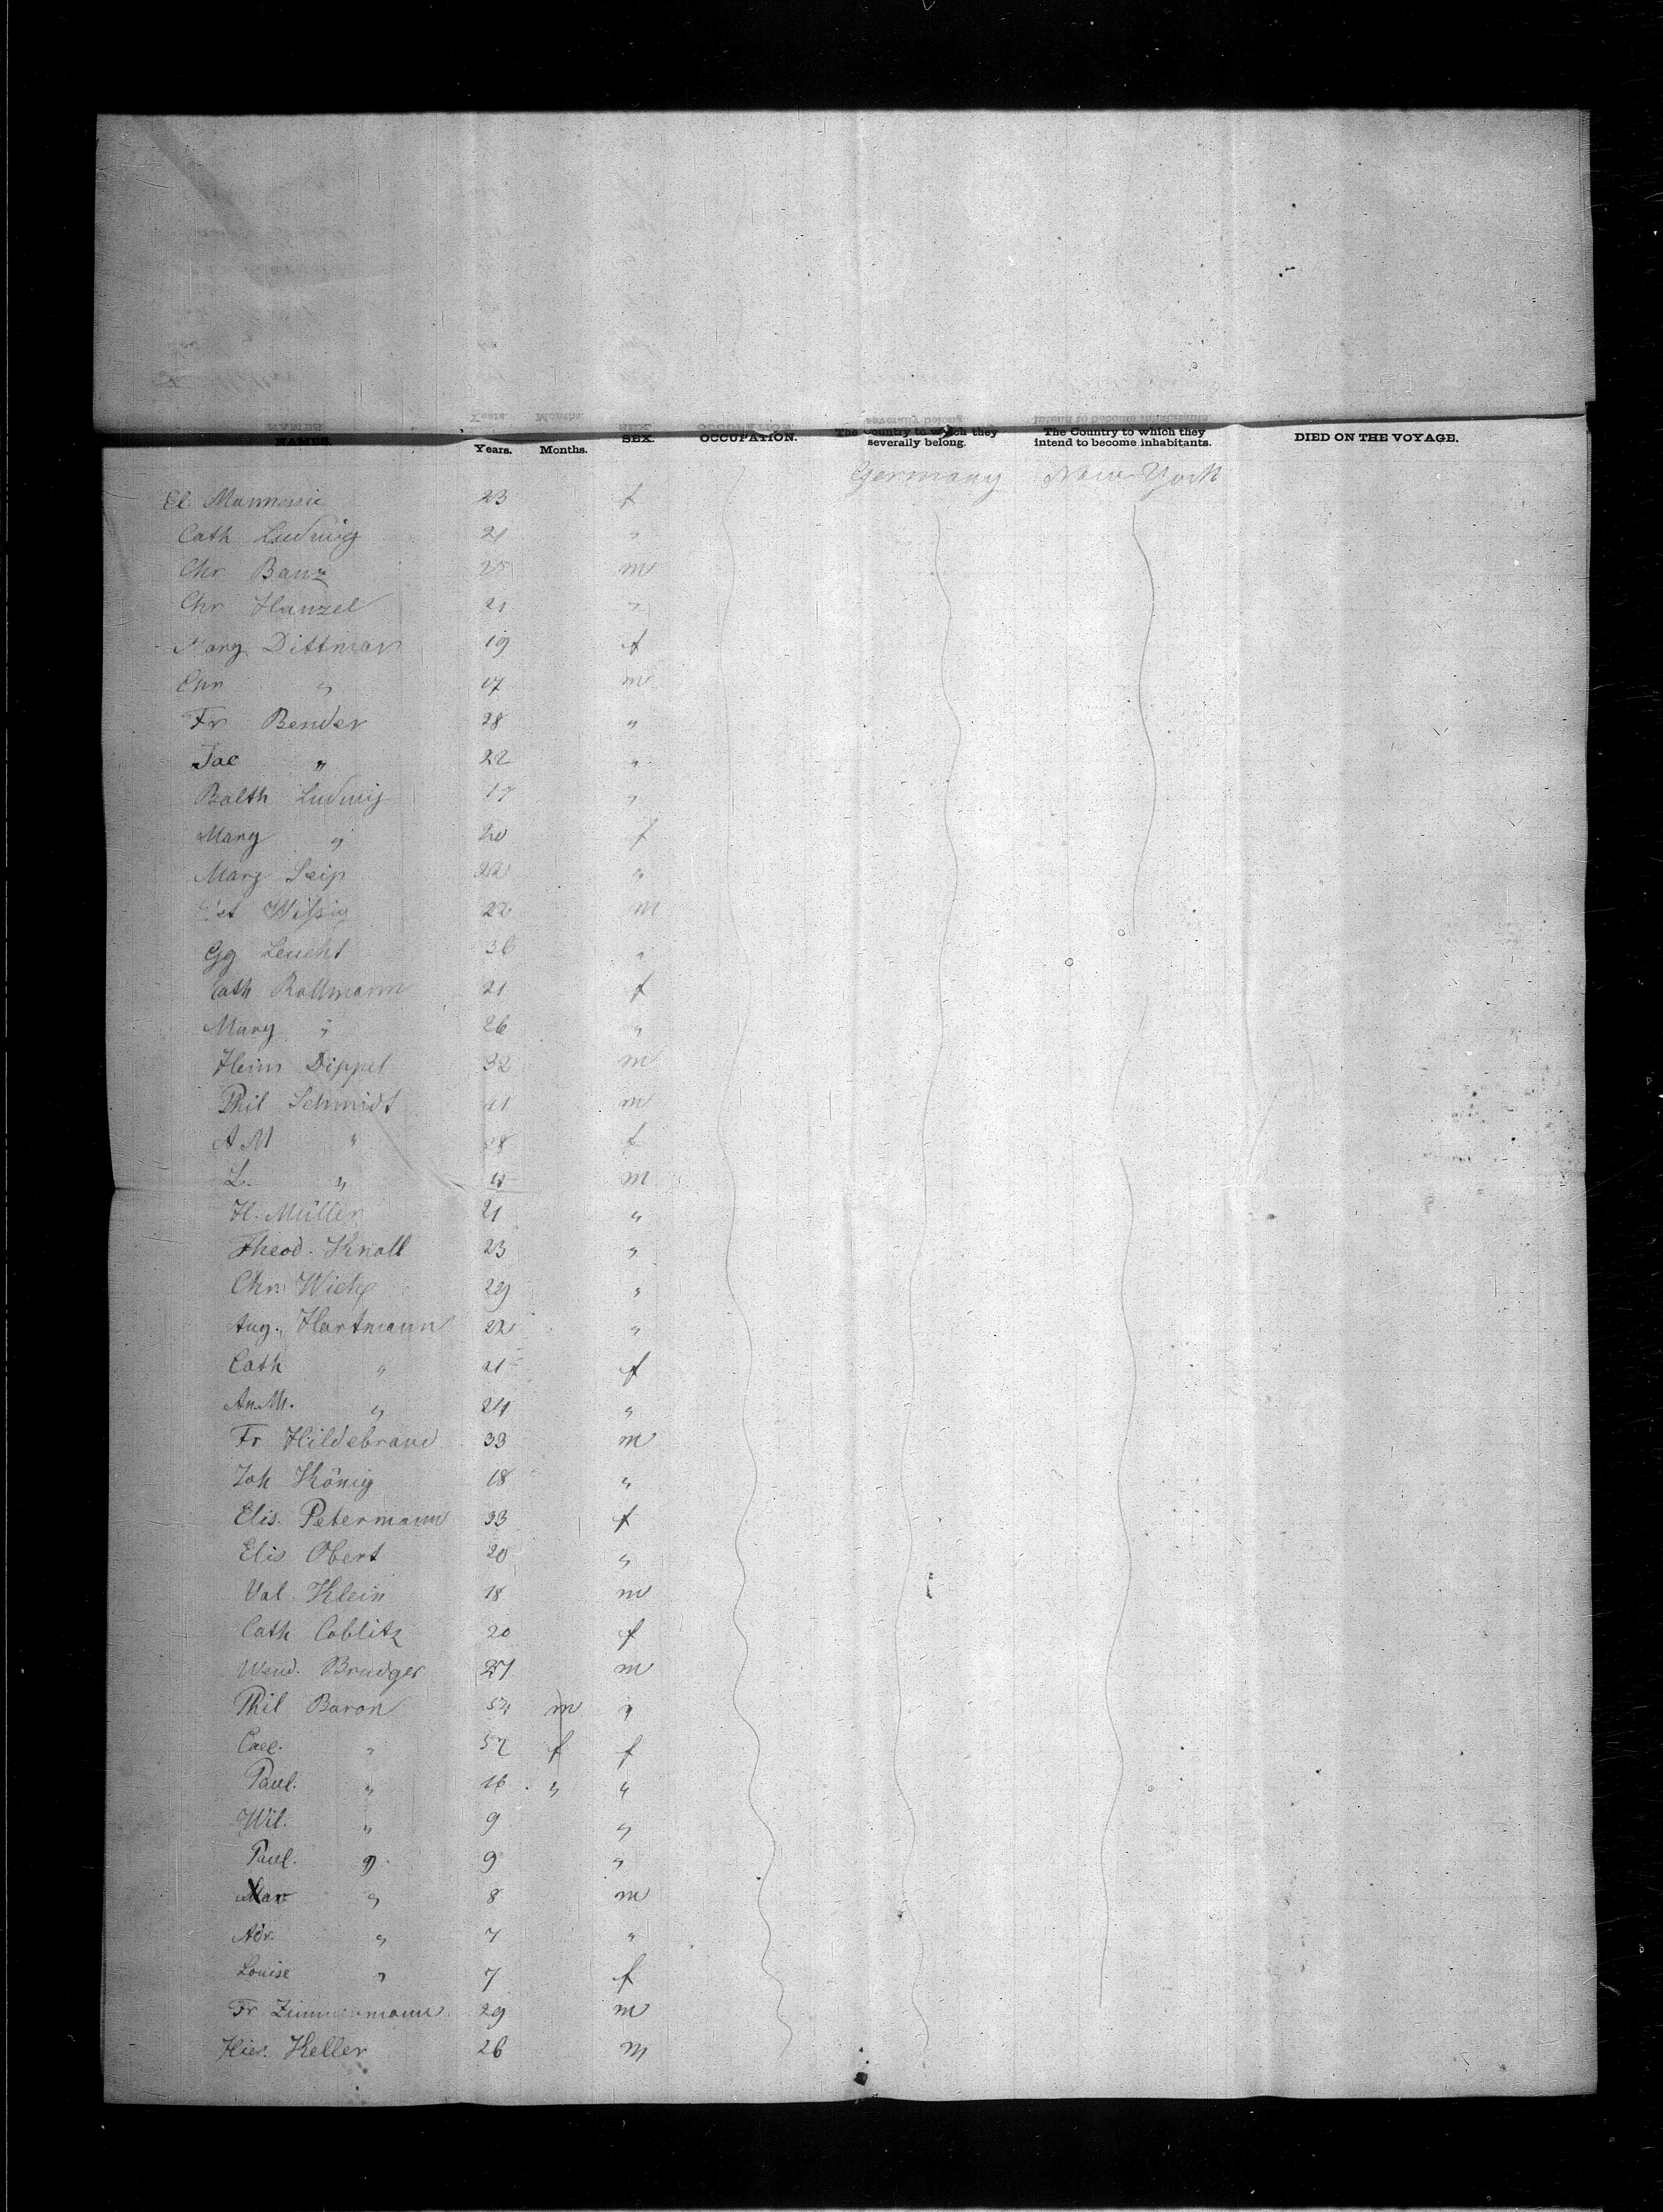 NAMES. Years. Months. SEX. OCCUPATION. The Country to which they severally belong. The Country to which they intend to become inhabitants. DIED ON THE VOYAGE.
Germany New-York
El. 23 f
Cath Ludwig 21 "
Chr Banz m
Chr Hanzel 21 "
Marg Dittmar 19 f
Chr " 17 m
Fr Bender 28 "
Jac " 22 "
Balth Ludwig 17 "
Marg " 20 f
Marg Seip 22 "
22 m
Gg Leucht 36 "
Cath Rollmann 21 f
Marg " 26 "
Heinr Dippel 32 m
Phil Schmidt m
A M " f
L. " m
H. Müller 21 "
Theod. Knoll 23 "
Chr 29 "
Aug. Hartmann 22 "
Cath " 21 f
An. M. " 24 "
Fr Hildebrand 33 m
Joh König 18 "
Elis. Petermann 33 f
Elis Obert 20 "
Val. Klein 18 m
Cath Coblitz 20 f
Wend. Brudger 27 m
Phil Baron 54 m "
" 52 f f
Paul. " 16 " "
Wil. " 9 "
Paul. " 9 "
" 8 m
Adr. " 7 "
Louise " 7 f
Fr Zimmermann 29 m
Hier. Keller 26 m